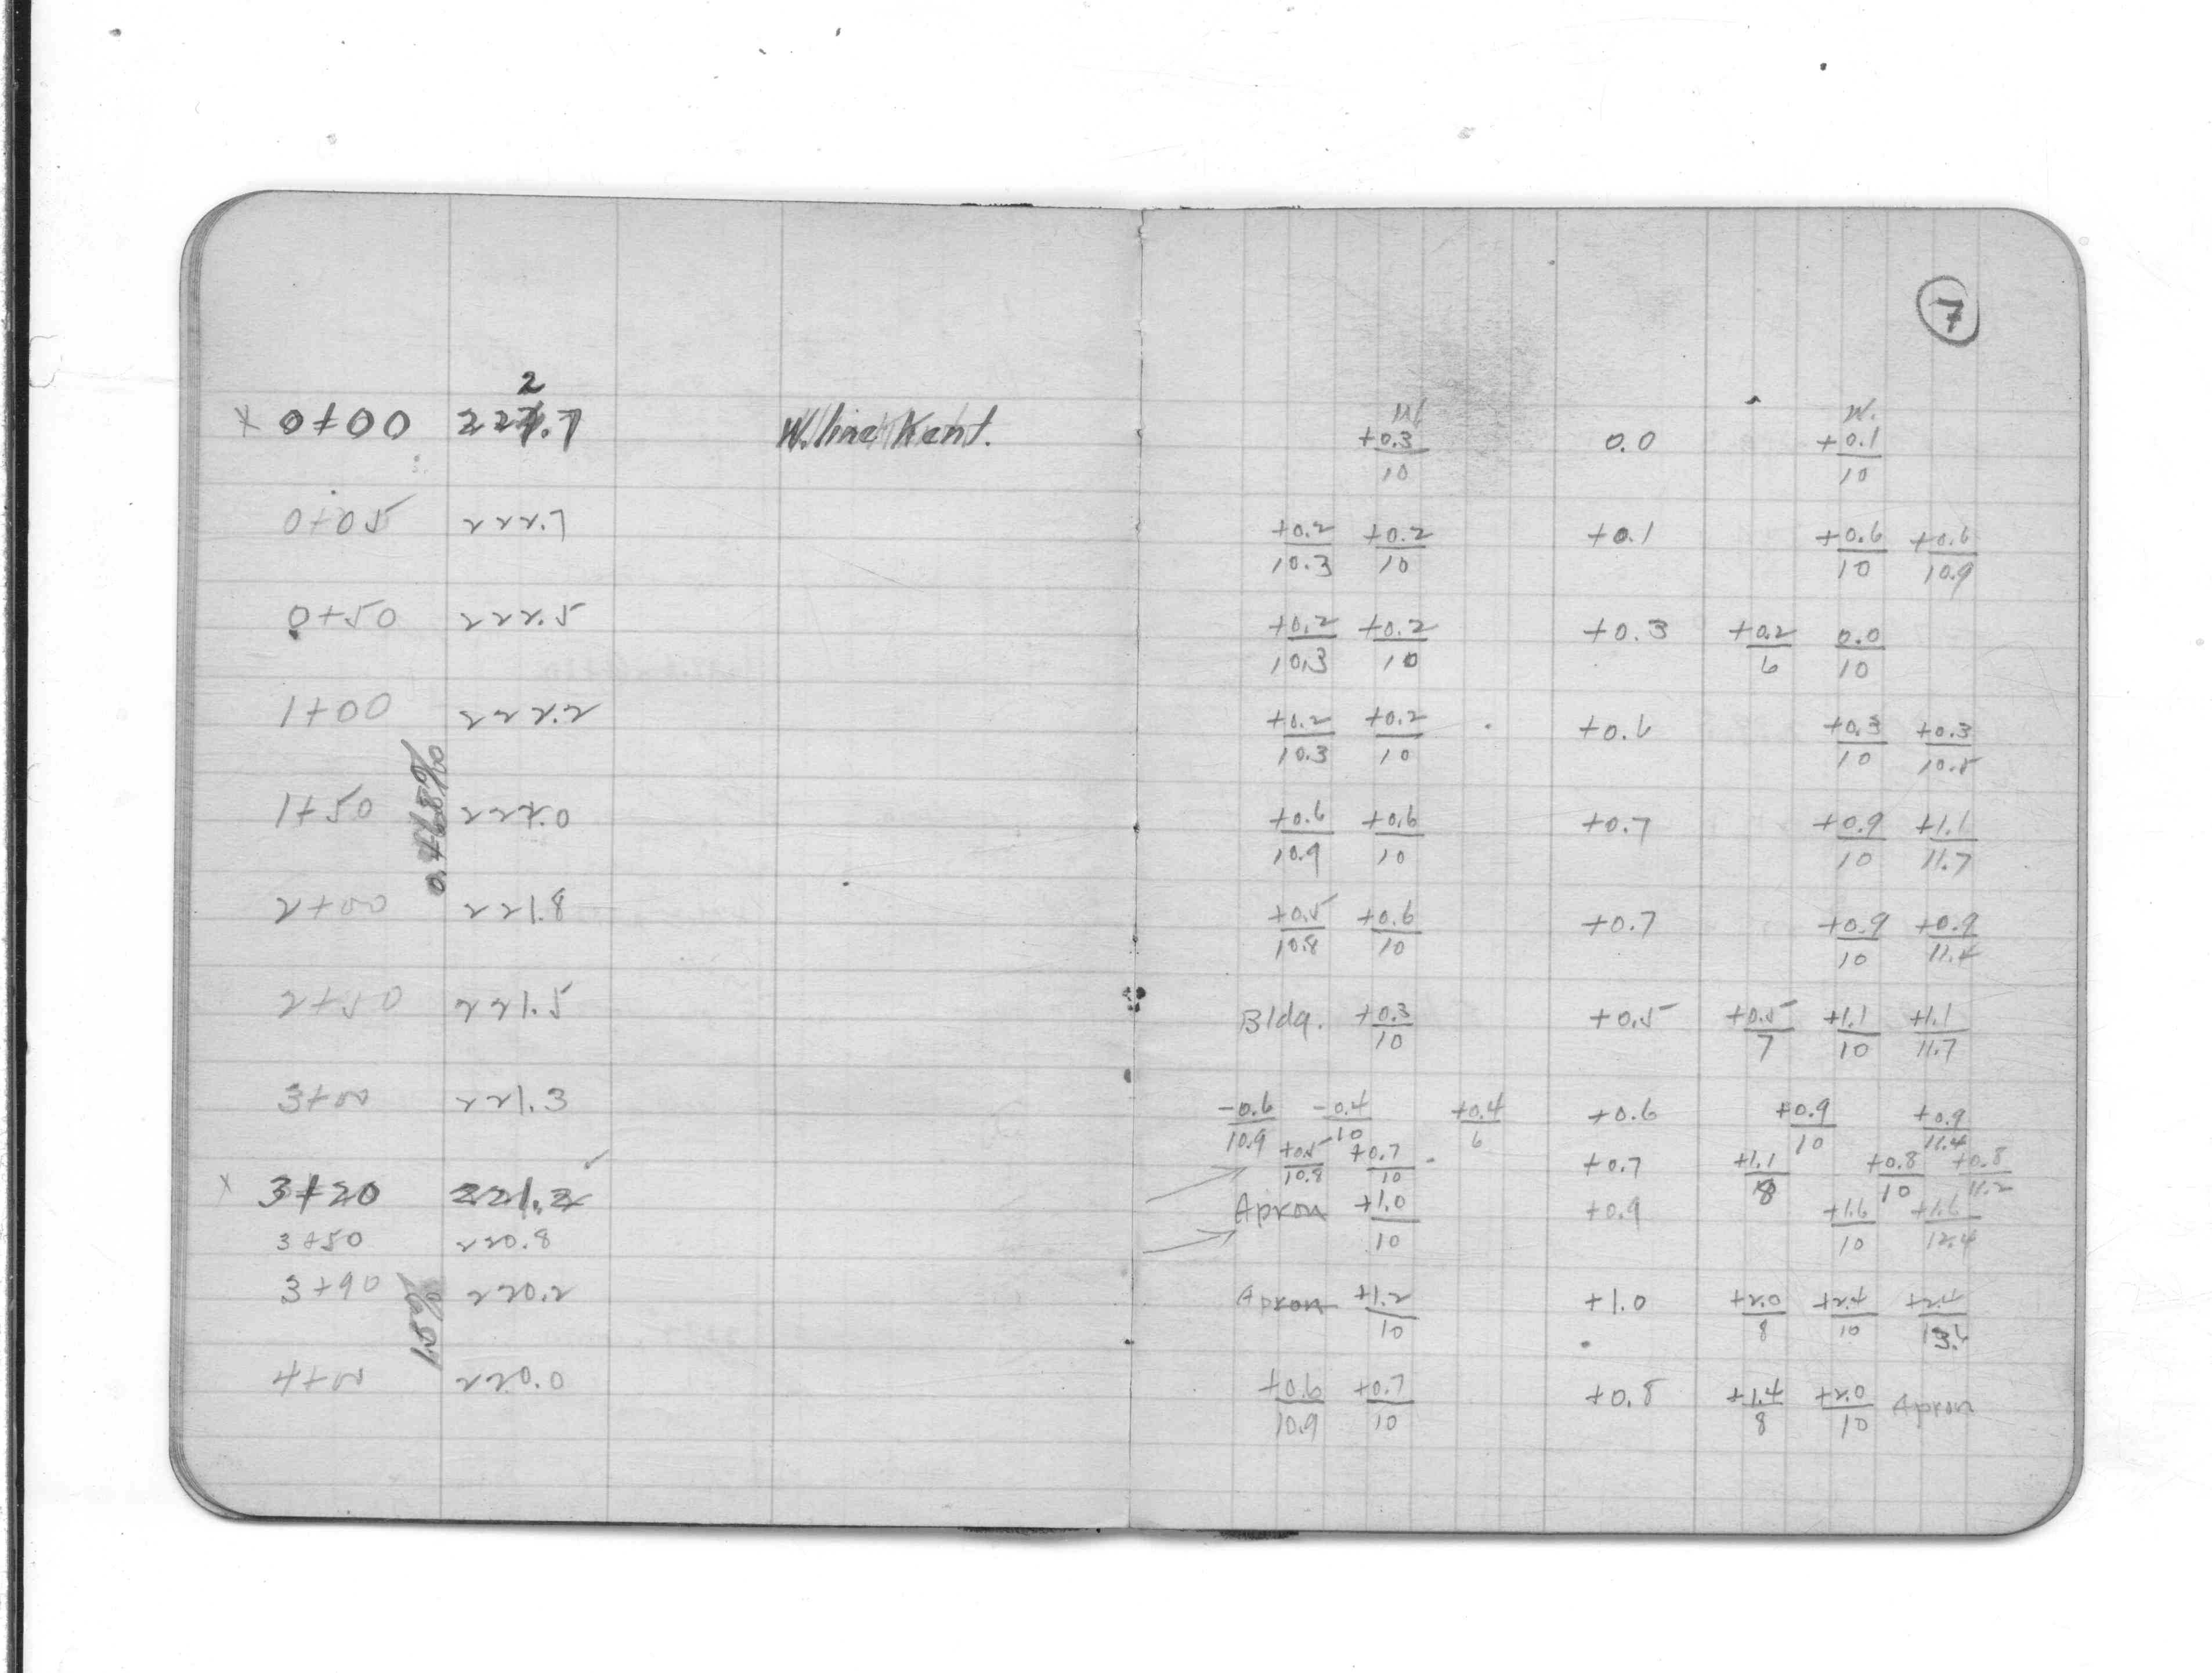 7
x 0+00 222.7 W. line Kent. W. +0.3/10 0.0 W. +0.1/10
0+05 222.7 +0.2/10.3 +0.2/10 +0.1 +0.6/10 +0.6/10.9
0+50 222.5 +0.2/10.3 +0.2/10 +0.3 +0.2/6 0.0/10
1+00 222.2 +0.2/10.3 +0.2/10 +0.6 +0.3/10 +0.3/10.5
0.468%
1+50 222.0 +0.6/10.9 +0.6/10 +0.7 +0.9/10 +1.1/11.7
2+00 221.8 +0.5/10.8 +0.6/10 +0.7 +0.9/10 +0.9/11.4
2+50 221.5 Bldg. +0.3/10 +0.5 +0.5/7 +1.1/10 +1.1/11.7
3+00 221.3 -0.6/10.9 -0.4/10 +0.4/6 +0.6 +0.9/10 +0.9/11.4
x 3+20 221.2 +0.5/10.8 +0.7/10 +0.7 +1.1/8 +0.8/10 +0.8/11.2
3+50 220.8 Apron +1.0/10 +0.9 +1.6/10 +1.6/12.4
3+90 220.2 Apron +1.2/10 +1.0 +2.0/8 +2.4/10 +2.4/13.6
1.5%
4+00 220.0 +0.6/10.9 +0.7/10 +0.8 +1.4/8 +2.0/10 Apron